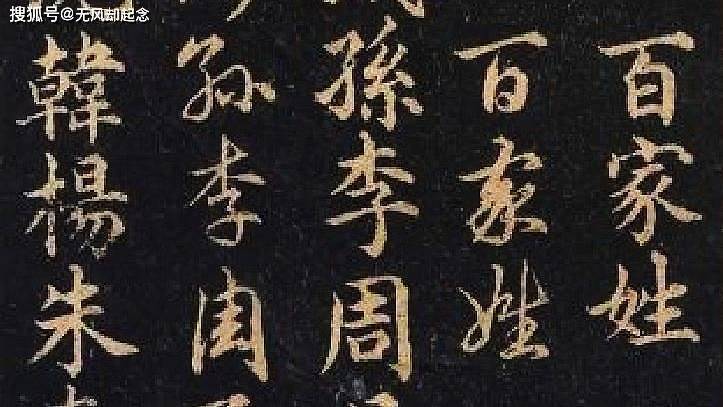 搜狐号@无风却起念
百家姓
百家姓
孫李周
孫李周
韓楊朱